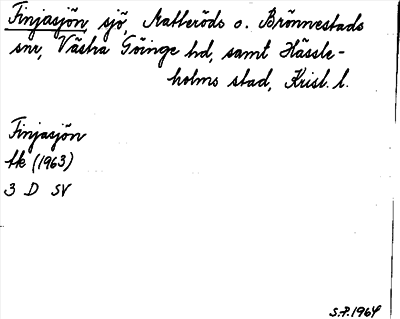 Finjasjön, sjö, Matteröds o. Brönnestads
snr, Västra Göinge hd, samt Hässle-
holms stad, Krist. l.
Finjasjön
tk (1963)
3 D SV
S.P. 1964